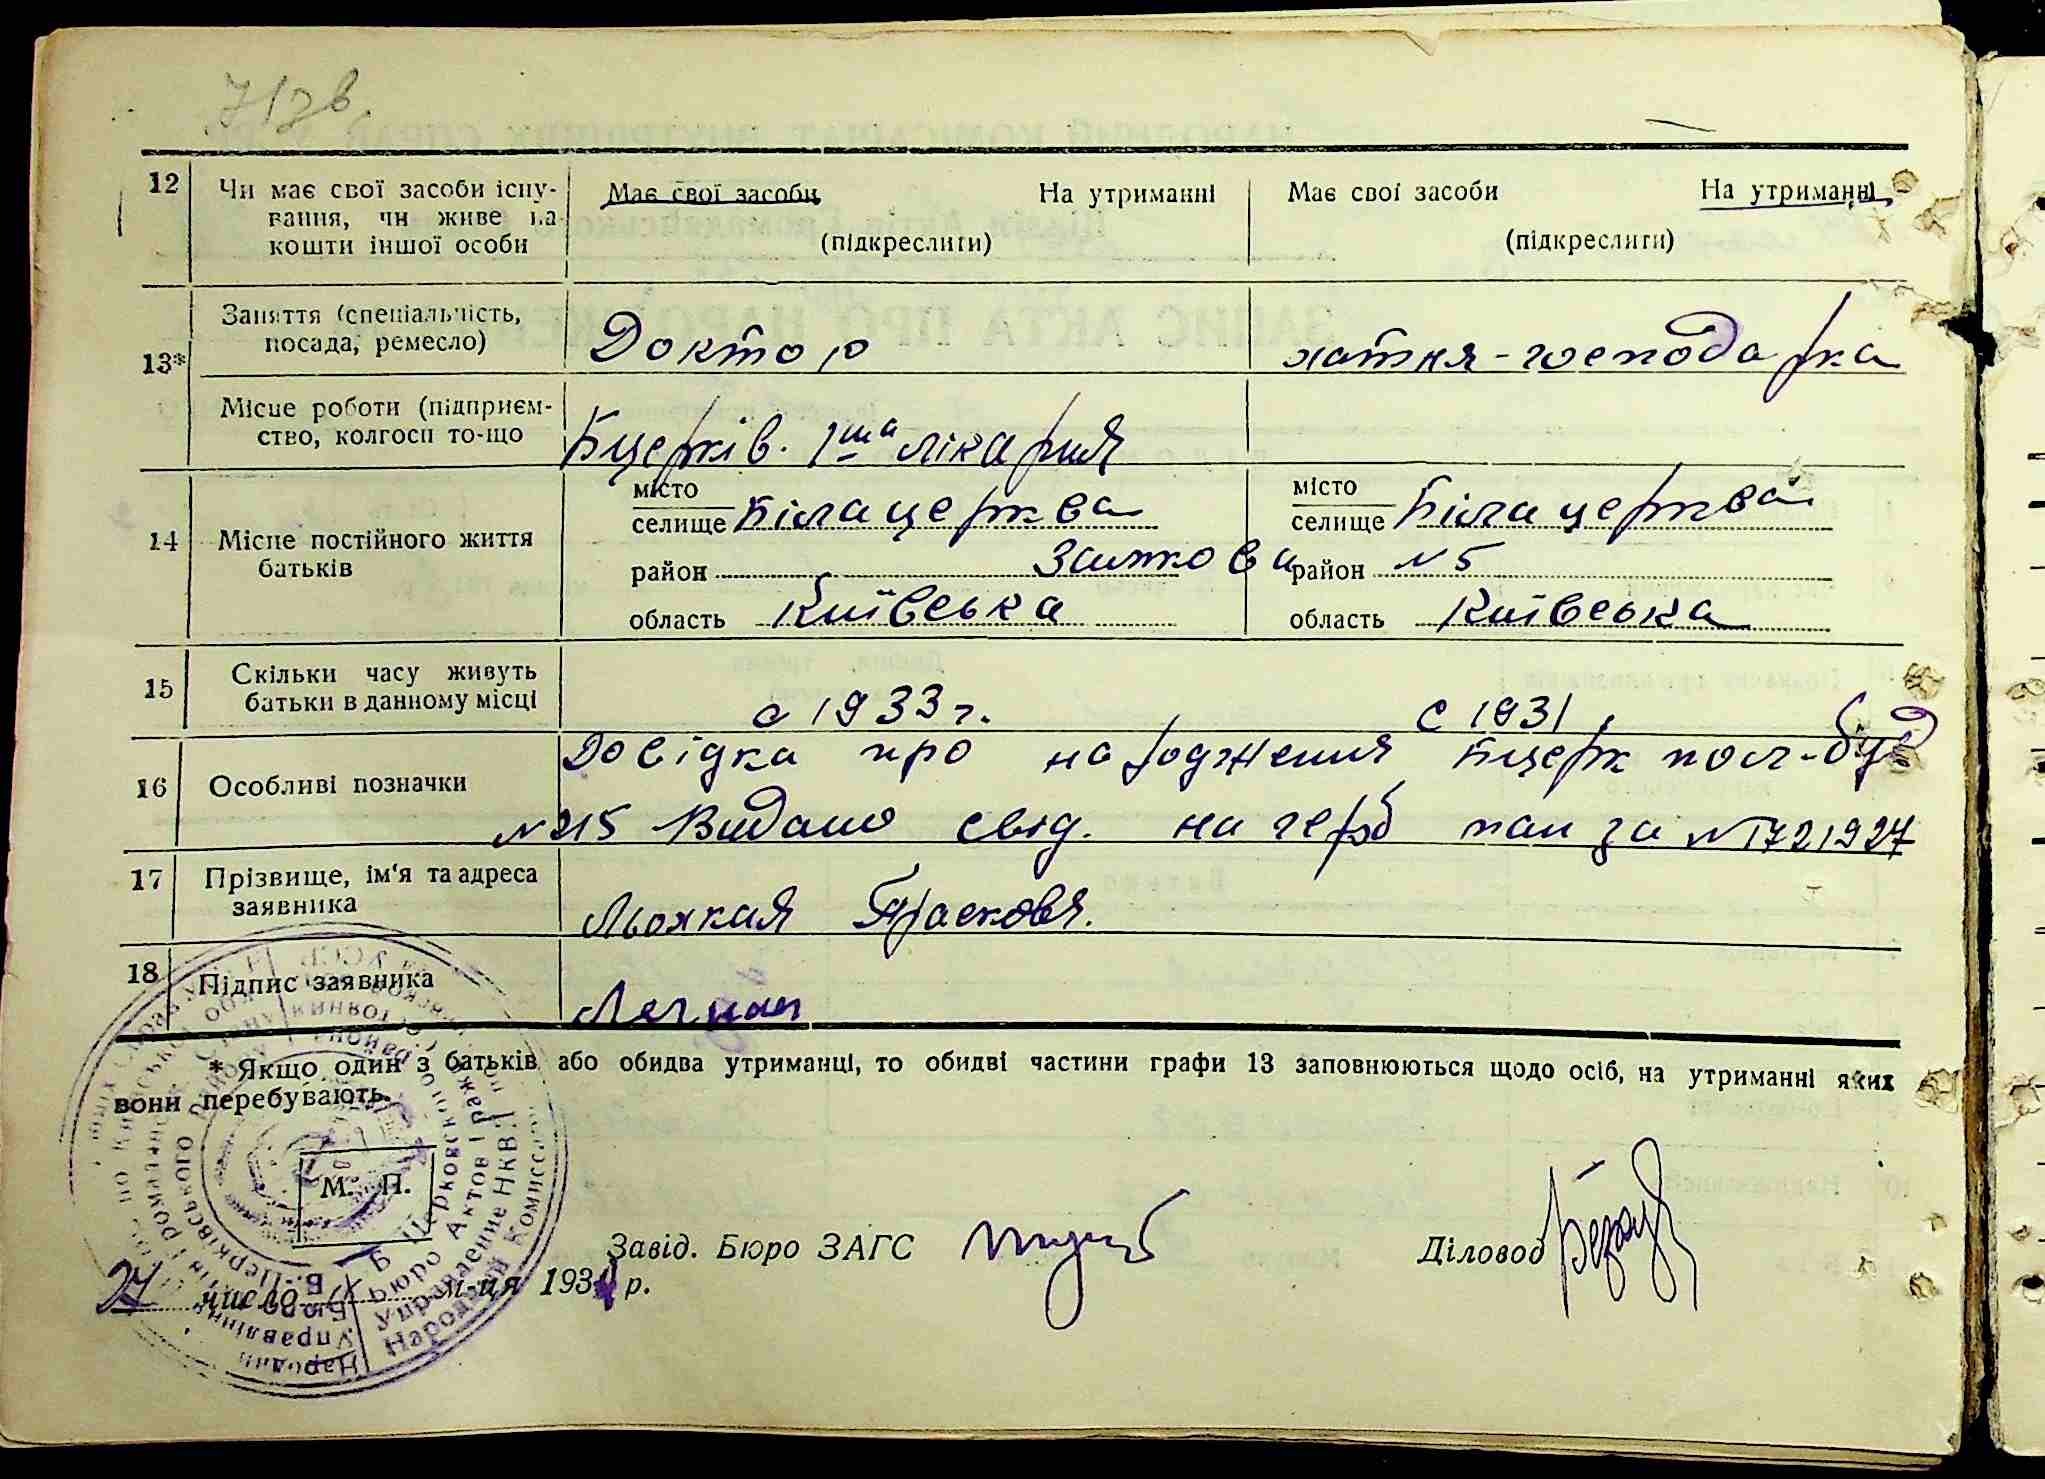 71зв.
12 Чи має свої засоби існу-
вання, чи живе на
кошти іншої особи
Має свої засоби На утриманні
(підкреслити)
Має свої засоби На утриманні
(підкреслити)
13*
Заняття (спеціальність,
посада, ремесло)
Доктор
хатня-господарка
Місце роботи (підприєм-
ство, колгосп то-що
Бцерків. 1ша лікарня
14 Місце постійного життя
батьків
місто
селище Біла церква
район Замкова
область Київська
місто
селище Біла церква
район №5
область Київська
15 Скільки часу живуть
батьки в данному місці
с 1933 г.
с 1931
16 Особливі позначки
Довідка про народження Бцерк пол-буд
№215 Видано свід. на герб пап за №1721927
17 Прізвище, ім'я та адреса
заявника
Парасковя.
18 Підпис заявника
* Якщо один з батьків або обидва утриманці, то обидві частини графи 13 заповнюються щодо осіб, на утриманні яких
вони перебувають.
М. П.
Завід. Бюро ЗАГС
Діловод
27 число IX м-ця 1934 р.
Б Церковское
Бюро Актов Граж
Управление НКВД
Народный Комиссар